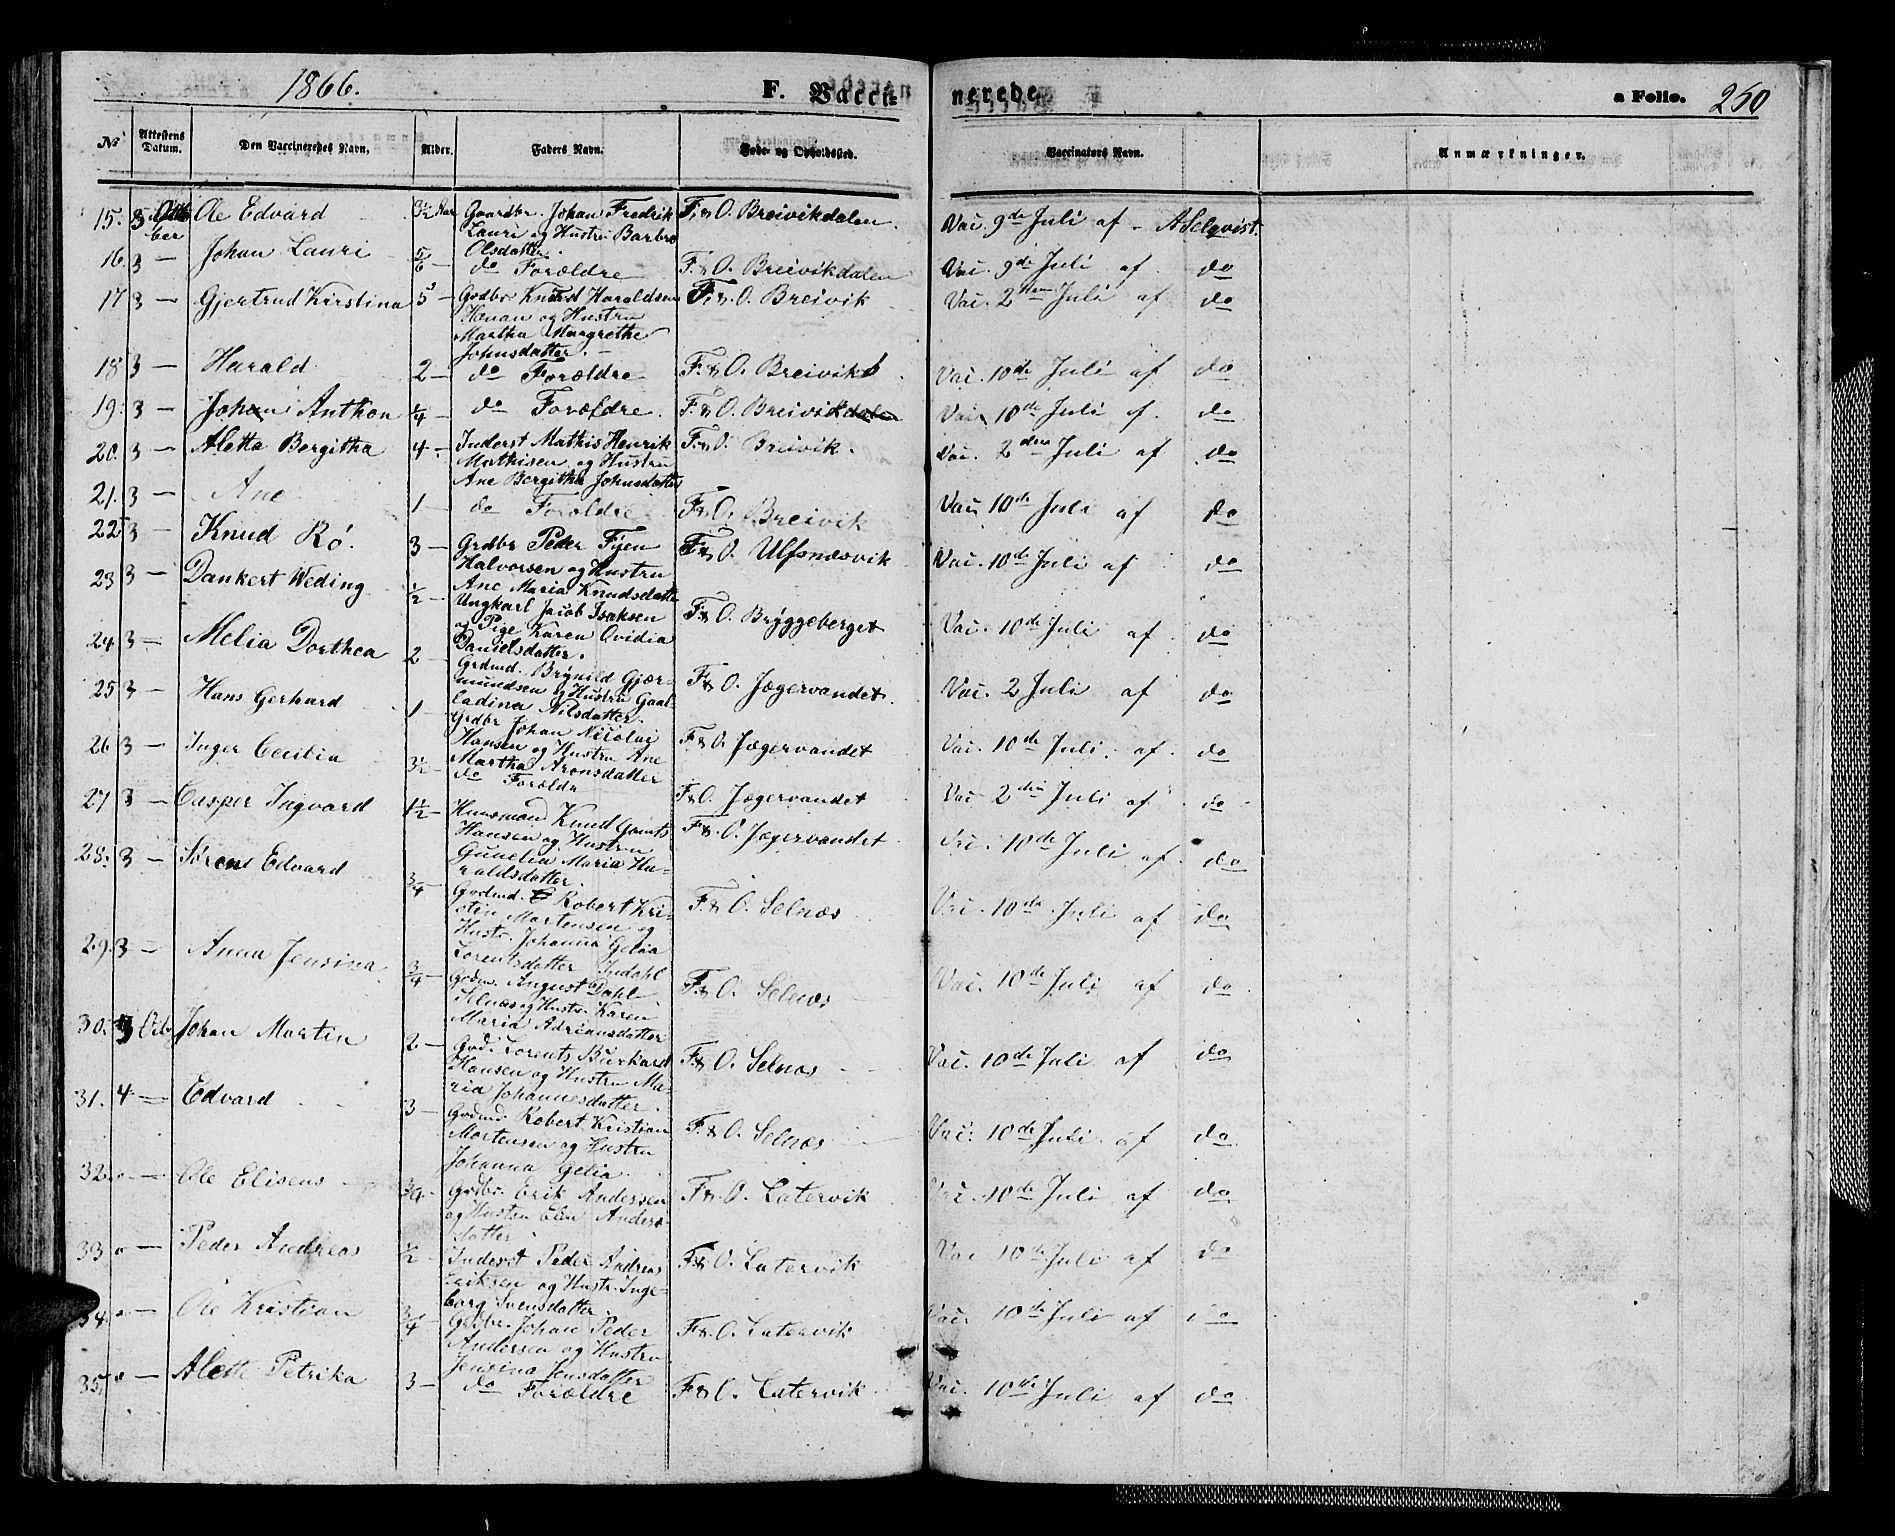 1866.
F. Vacci=
nerede
a Folio. 250
No
Attestens Datum.
Den Vaccineredes Navn.
Alder.
Faders Navn.
Føde- og Opholdssted.
Vaccinators Navn.
Anmærkninger.
15. 3 Octo Ole Edvard 3½ Aar Gaardbr. Johan Fredrik F. & O. Breivikdalen. Vac. 9de Juli af A Selqvist.
ber Lauri og Hustru Barbro
Olsdatter.
16. 3 — Johan Lauri 5/6 — do Forældre F. & O. Breivikdalen Vac. 9de Juli af do
17 3 — Gjertrud Kirstina 5 — Grdbr Knud Haraldsen F. & O. Breivik Vac. 2den Juli af do
og Hustru
Martha Margrethe
Johnsdatter.
18 3 — Harald 2 — do Forældre F. & O. Breivik Vac. 10de Juli af do
19. 3 — Johan Anthon ¼ — do Forældre. F. & O. Breivikdalen Vac. 10de Juli af do
20. 3 — Aletta Bergitha 4 — Inderst Mathis Henrik F. & O. Breivik. Vac. 2den Juli af do
Mathisen og Hustru
Ane Bergitha Johnsdatter
21. 3 — Ane 1 — do Forældre F. & O. Breivik Vac 10de Juli af do
22 3 — Knud Rø. 3 — Grdbr Peder Fyen F. & O. Ulfsnæsvik Vac. 10de Juli af do
Halvorsen og Hustru
Ane Maria Knudsdatter
23 3 — Dankert Weding ½ — Ungkarl Jacob Isaksen F. & O. Brÿggeberget Vac. 10de Juli af do
og Pige Karen Ovidia
Danielsdatter.
24 3 — Melia Dorthea 2 — Grdmd. Brynild Gjær- F. & O. Jægervandet. Vac. 2 Juli af do
mundsen og Hustru Gaal-
ladina Nilsdatter.
25 3 — Hans Gerhard 1 — Grdbr Johan Nicolai F. & O. Jægervandet Vac. 10de Juli. af. do
Hansen og Hustru Ane
Martha Aronsdatter
26 3 — Inger Cecilia 3½ — do Forældre F. & O. Jægervandet Vac 2den Juli af do
27 3 — Casper Ingvard 1½ — Huusmand Knud F. & O. Jægervandet Vac. 10de Juli af. do
Hansen og Hustru
Gunelia Maria Ha-
raldsdatter.
28. 3 — Søren Edvard ¾ — Grdmd. Robert Kri- F. & O. Selnæs Vac. 10de Juli af do
stin Mortensen og
Hustr. Johanna Gelia
Lorentsdatter Indahl
29. 3 — Anna Jensina ¾ — Grdm. August Dahl F. & O. Selnæs Vac. 10de Juli af do
Selnæs og Hustru Karen
Maria Adriansdatter
30. 3 Octb Johan Martin 2 — Grd. Lorents Burkard F. & O. Selnæs Vac. 10de Juli af do
Hansen og Hustru Ma-
ria Johannesdatter.
31. 4 — Edvard 3 — Grdmd. Robert Kristian F. & O. Selnæs Vac. 10de Juli. af do
Mortensen og Hustru
Johanna Gelia
32. " — Ole Eliseus ¾ — Grdbr. Erik Anderssen F. & O. Latervik Vac. 10de Juli af do
og Hustru Elen Anders-
datter
33 " — Peder Andreas ½ — Inderst Peder Andreas F. & O. Latervik Vac 10de Juli af do
Eriksen og Hustr. Inge-
borg Svensdatter
34 " — Ole Kristian ¾ — Grdbr. Johan Peder F. & O. Latervik Vac. 10de Juli af do
Andersen og Hustru
Jensina Jensdatter
35. " — Aleth Petrika 3 — do Forældre F. & O. Latervik Vac. 10de Juli af do